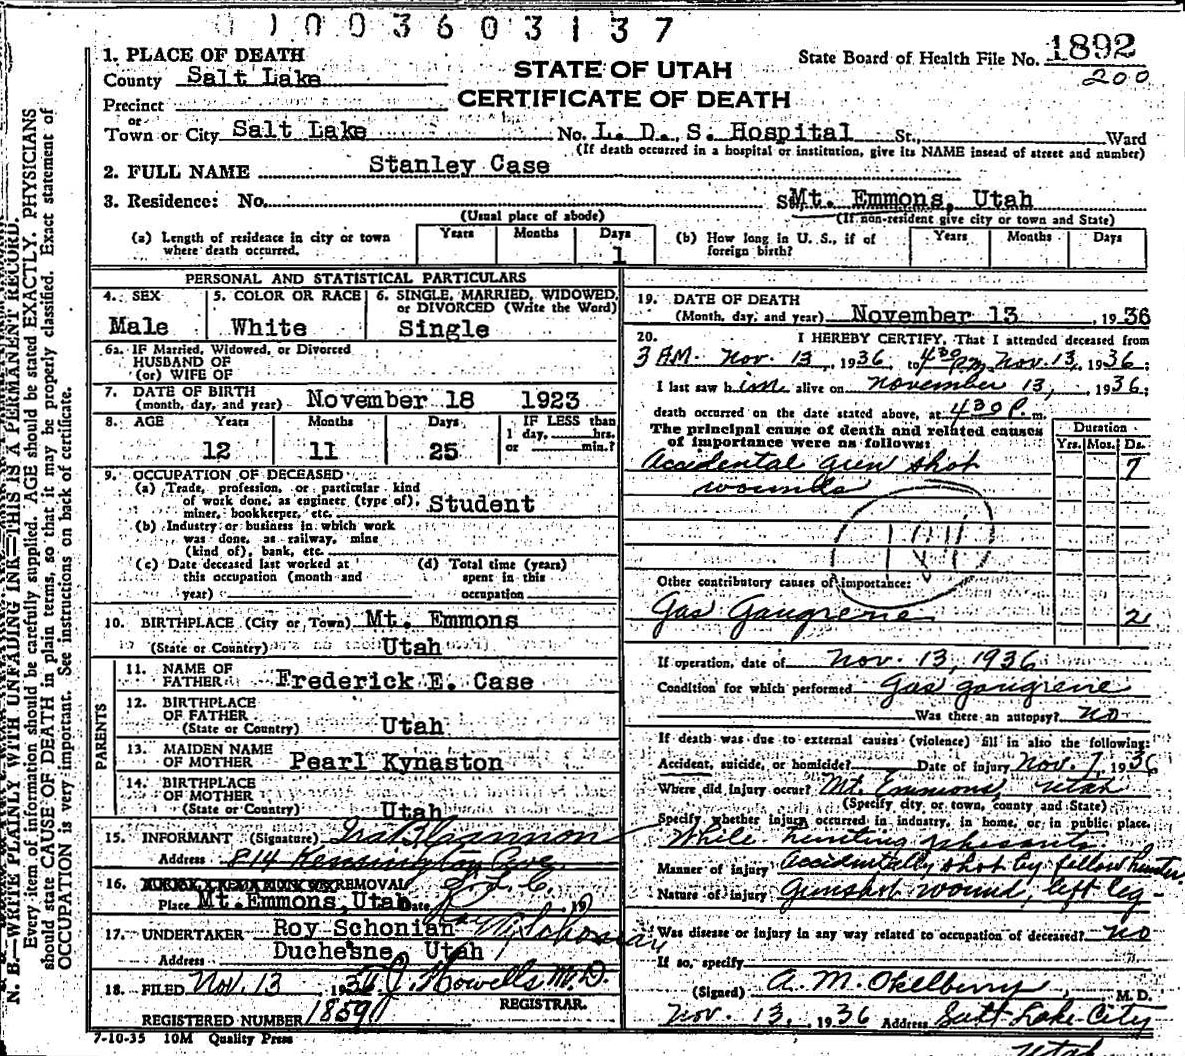 1003603137
1. PLACE OF DEATH
County Salt Lake
Precinct
or
Town or City Salt Lake No. L. D. S. Hospital St., Ward
(If death occurred in a hospital or institution, give its NAME insead of street and number)
STATE OF UTAH
CERTIFICATE OF DEATH
State Board of Health File No. 1892
200
2. FULL NAME Stanley Case
3. Residence: No. St. Mt. Emmons, Utah
(Usual place of abode) (If non-resident give city or town and State)
(a) Length of residence in city or town where death occurred. Years Months Days 1
(b) How long in U. S., if of foreign birth? Years Months Days
PERSONAL AND STATISTICAL PARTICULARS
4. SEX Male
5. COLOR OR RACE White
6. SINGLE, MARRIED, WIDOWED, or DIVORCED (Write the Word) Single
6a. IF Married, Widowed, or Divorced
HUSBAND OF
(or) WIFE OF
7. DATE OF BIRTH
(month, day, and year) November 18 1923
8. AGE Years Months Days IF LESS than
12 11 25 1 day, hrs.
or min.?
9. OCCUPATION OF DECEASED
(a) Trade, profession, or particular kind
of work done, as engineer (type of),
miner, bookkeeper, etc. Student
(b) Industry or business in which work
was done, as railway, mine
(kind of), bank, etc.
(c) Date deceased last worked at
this occupation (month and
year)
(d) Total time (years)
spent in this
occupation
10. BIRTHPLACE (City or Town) Mt. Emmons
(State or Country) Utah
PARENTS
11. NAME OF
FATHER Frederick E. Case
12. BIRTHPLACE
OF FATHER
(State or Country) Utah
13. MAIDEN NAME
OF MOTHER Pearl Kynaston
14. BIRTHPLACE
OF MOTHER
(State or Country) Utah
15. INFORMANT (Signature)
Address 814 Kensington Ave.
S. L. C.
16. REMOVAL
Place Mt. Emmons, Utah Date 19
17. UNDERTAKER Roy Schonian
Address Duchesne, Utah
18. FILED Nov. 13 1936 Howells M. D.
REGISTRAR.
REGISTERED NUMBER 1859
7-10-35 10M Quality Press
19. DATE OF DEATH
(Month, day, and year) November 13 1936
20. I HEREBY CERTIFY, That I attended deceased from
3 A.M. Nov. 13, 1936, to 4:30 pm Nov. 13, 1936;
I last saw him alive on November 13, 1936;
death occurred on the date stated above, at 4:30 P. m.
The principal cause of death and related causes
of importance were as follows: Duration
Yrs. Mos. Ds.
Accidental gun shot 7
wounds
Other contributory causes of importance:
Gas Gangrene 2
If operation, date of Nov. 13, 1936
Condition for which performed Gas gangrene
Was there an autopsy? no
If death was due to external causes (violence) fill in also the following:
Accident, suicide, or homicide? Date of injury Nov. 7, 1936
Where did injury occur? Mt. Emmons, Utah
(Specify city or town, county and State)
Specify whether injury occurred in industry, in home, or in public place.
While hunting phesants
Manner of injury Accidentally shot by fellow hunter
Nature of injury Gunshot wound, left leg
Was disease or injury in any way related to occupation of deceased? no
If so, specify
(Signed) A. M. Okelberry, M. D.
Nov. 13, 1936 Address Salt Lake City
Utah
N. B.—WRITE PLAINLY WITH UNFADING INK—THIS IS A PERMANENT RECORD.
Every item of information should be carefully supplied. AGE should be stated EXACTLY. PHYSICIANS
should state CAUSE OF DEATH in plain terms, so that it may be properly classified. Exact statement of
OCCUPATION is very important. See instructions on back of certificate.